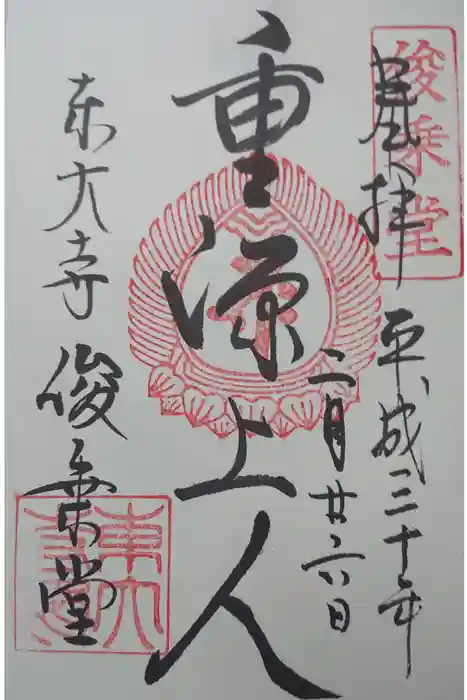 俊乗堂
奉拝
平成三十年
二月廿六日
重源上人
東大寺
俊乗堂
東大